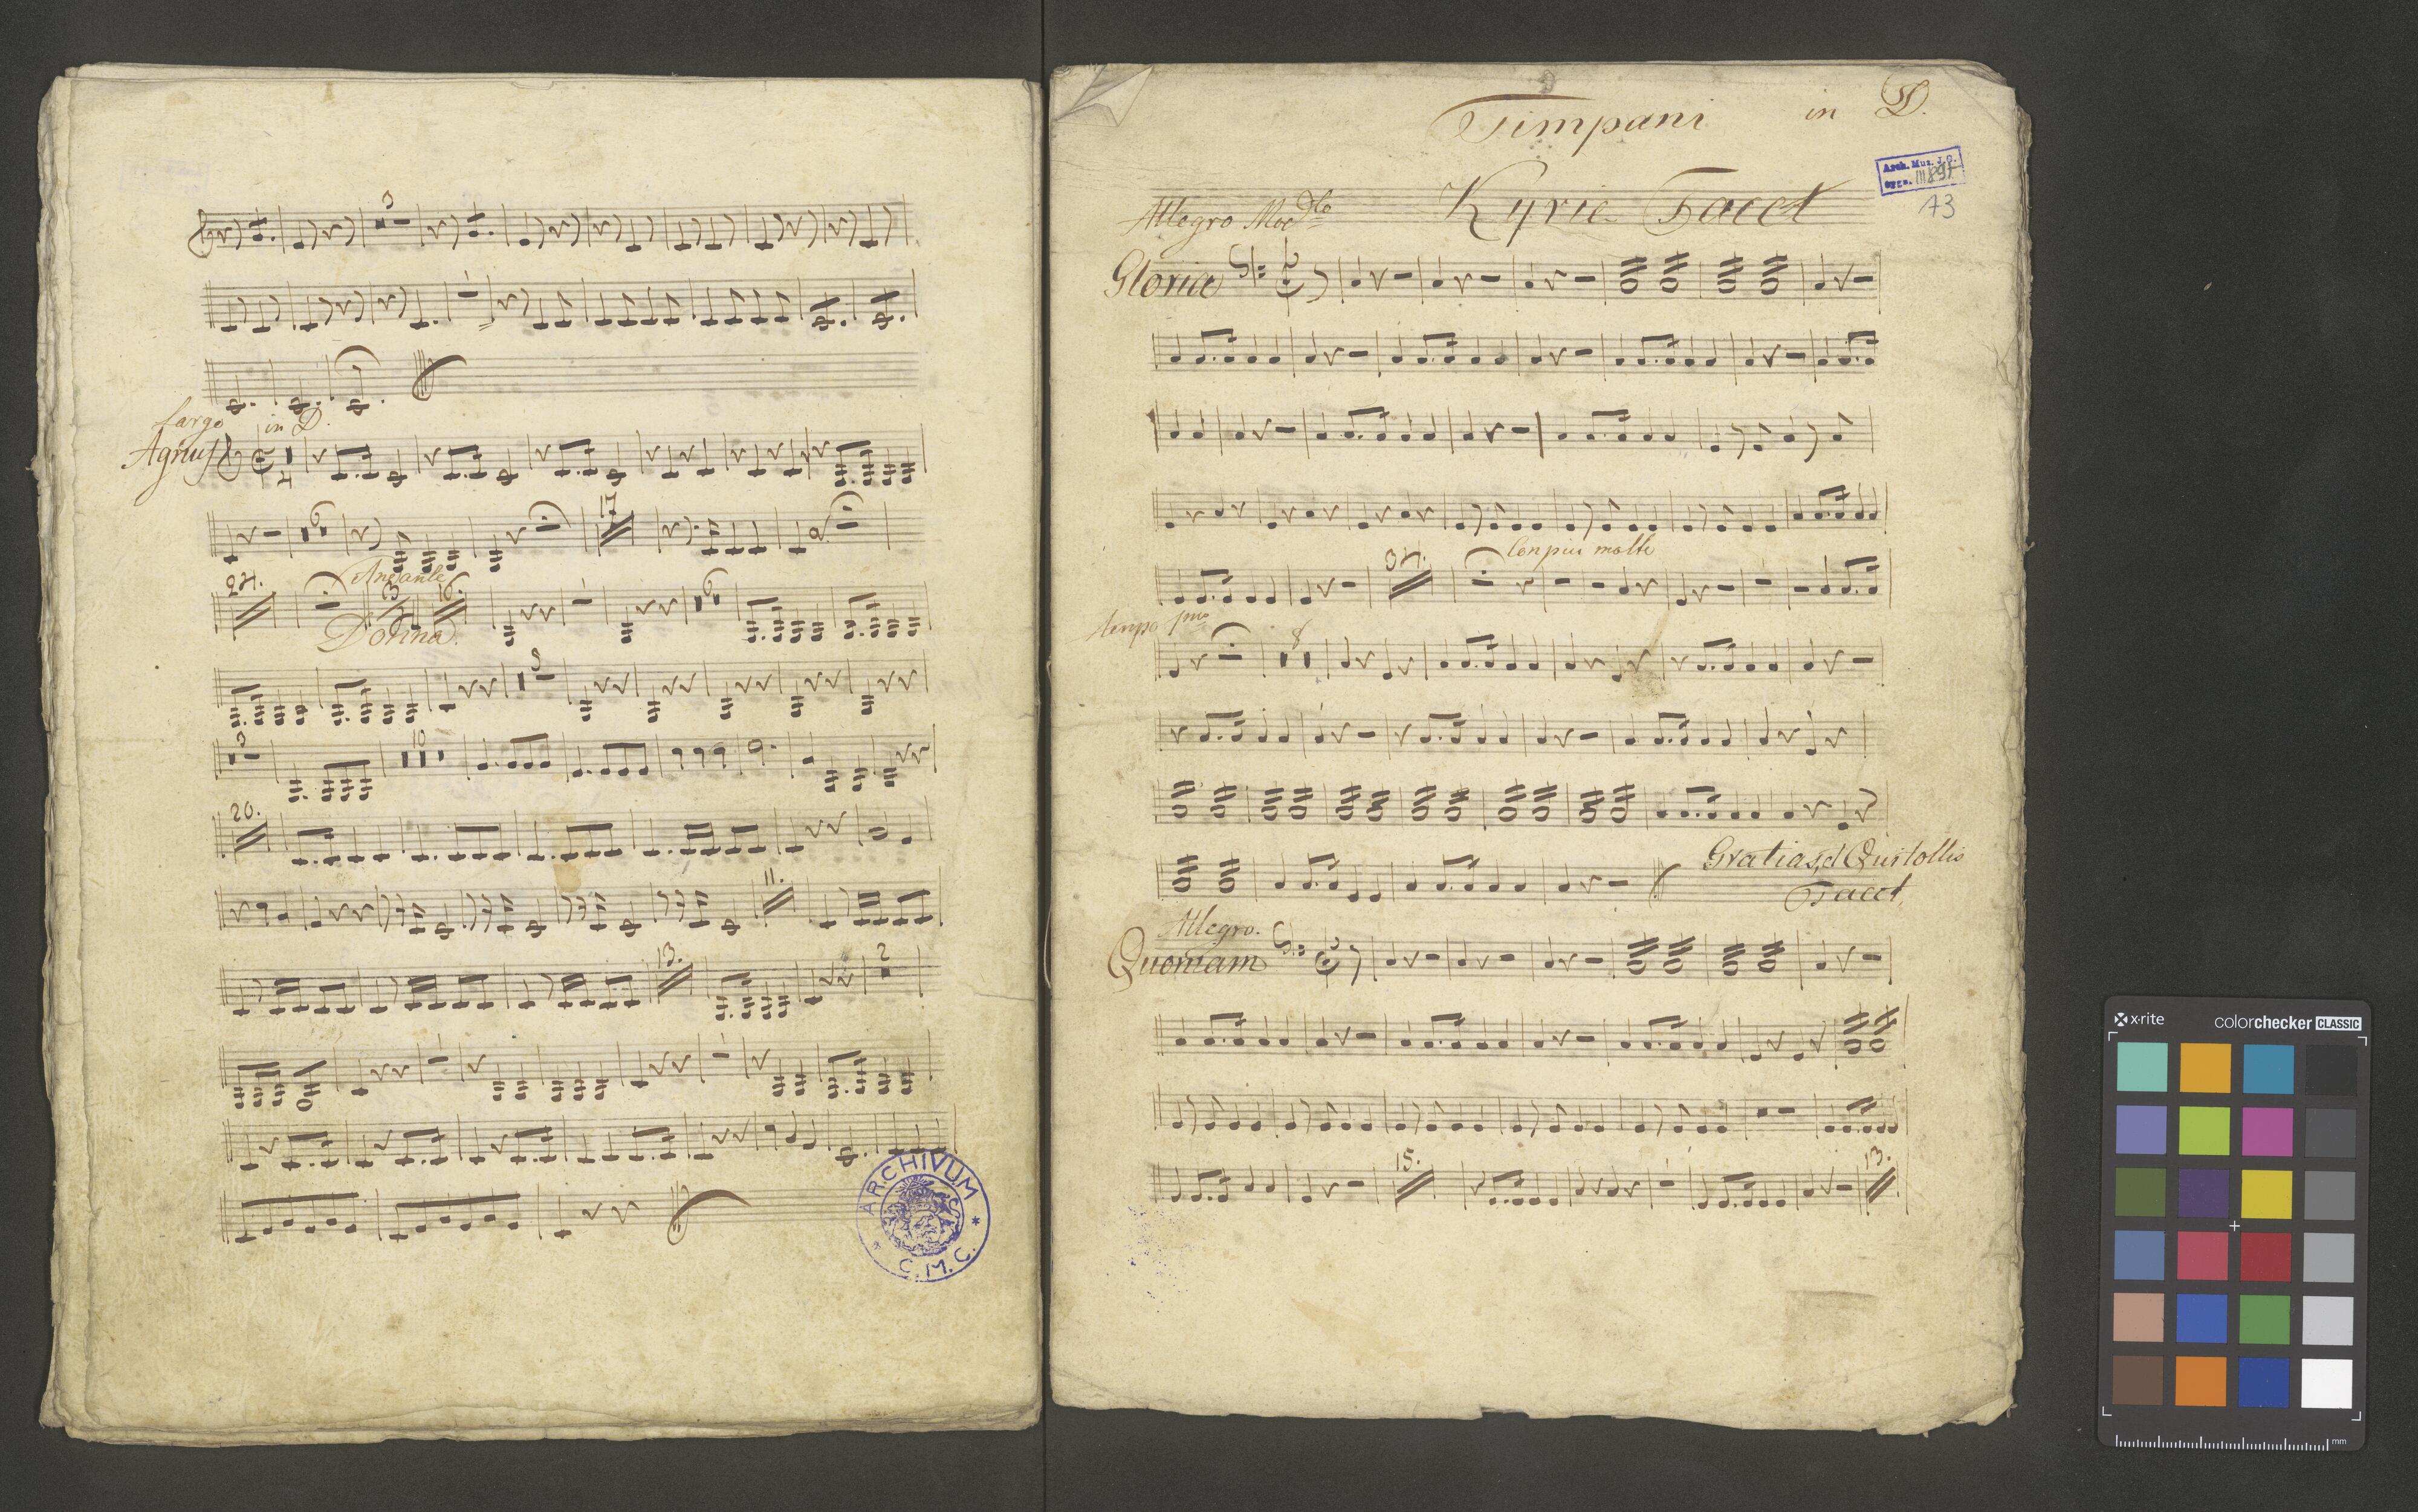 3
Largo in D.
Agnus
4
6
17
24.
Andante
3
16.
6
Donna.
3
10
20.
11.
13.
2
ARCHIVUM
C.M.C.
Timpani in D.
Arch. Muz. J. G.
sygn. III 897
A3
Allegro Mod.to
Kyrie Tacet
Gloria
Con piu molto
tempo pmo
8
Gratias, et Qui tollis
Tacet
Allegro.
Quoniam
15.
13.
x·rite
colorchecker CLASSIC
mm